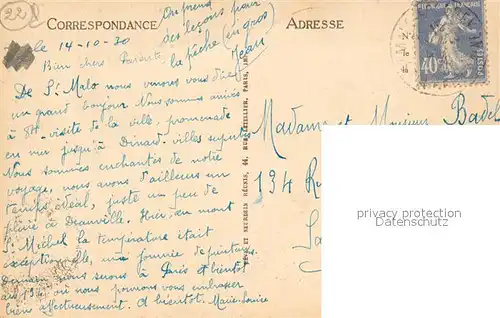 22
CORRESPONDANCE
ADRESSE
On prend
des leçons pour
la pêche (en gros)
Jean
le 14-10-30
Bien chers Parents
De St Malo nous vinons vous dire
un grand bonjour Nous sommes arrivés
à 8h - visite de la ville, promenade
en mer jusqu'à Dinard villes superbes
Nous sommes enchantés de notre
voyage, nous avons d'ailleurs un
temps idéal, juste un peu de
pluie à Deauville. Hier, au mont
St Michel la température était
exceptionnelle, une journée de printemps.
Demain nous serons à Paris et bientôt
au 134 où nous pourrons vous embrasser
bien affectueusement. A bientôt. Marie-Louise
LÉVY ET NEURDEIN RÉUNIS, 44, RUE LETELLIER, PARIS, IMP.
Madame et Monsieur
134 R
40c
POSTES
privacy protection
© veikkos.com